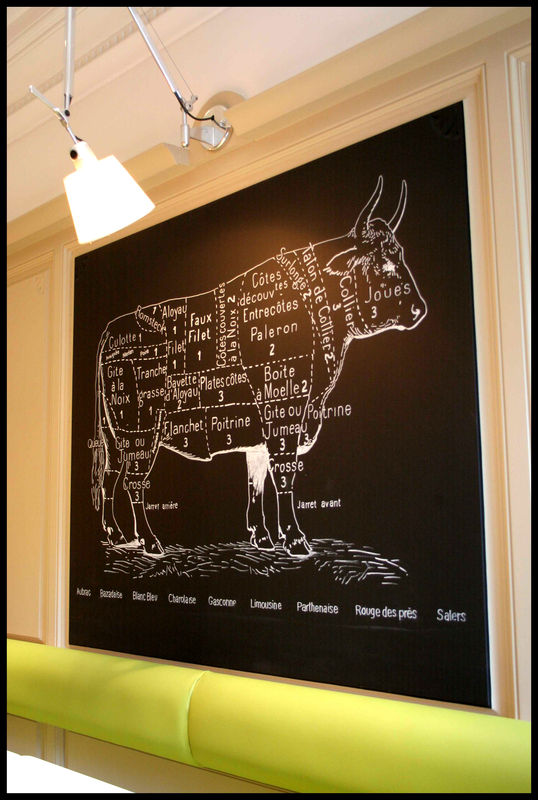 Romsteck
1
Aloyau
1
Culotte 1
Filet
1
Faux
Filet
1
Côtes couvertes
à la Noix 2
Côtes
découv tes
Entrecôtes
Paleron
2
Surlonge 2
Talon de Collier 2
Collier
3
Joues
3
Gîte
à la
Noix
1
Tranche
grasse
1
Bavette
d'Aloyau
2
Plates côtes
3
Boîte
à Moelle 2
Flanchet
3
Poitrine
3
Gîte ou
Jumeau
3
Poitrine
3
Queue
Gîte ou
Jumeau
3
Crosse
3
Crosse
3
Jarret arrière
Jarret avant
Aubrac Bazadaise Blanc Bleu Charolaise Gasconne Limousine Parthenaise Rouge des près Salers